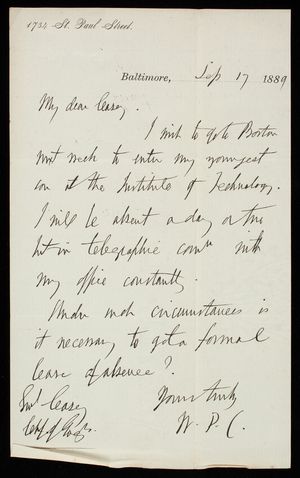 1734 St. Paul Street.
Baltimore, Sep 17 1889
My dear Casey.
I wish to go to Boston
next week to enter my youngest
son at the Institute of Technology.
I will be absent a day or two
but in telegraphic comn with
my office constantly.
Under such circumstances is
it necessary to get a formal
leave of absence?
Genl Casey
Chf of Engrs.
Yours truly
W. P. C.